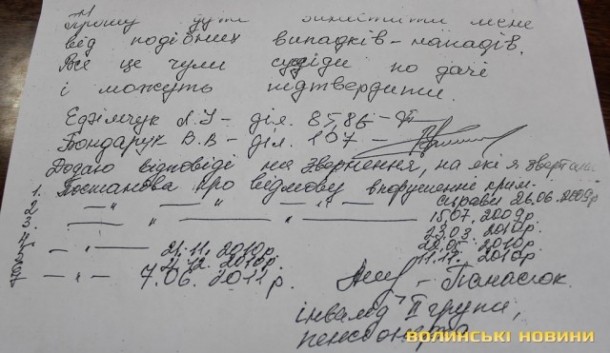 Прошу захистити мене
від подібних випадків - нападів.
Все це чули сусіди по дачі
і можуть підтвердити.
Едімчук Л.І - діл. 85,86 -
Бондарук В.В - діл. 107 -
Додаю відповіді на звернення, на які я зверталась
1. Постанова про відмову в порушенні крим.
справи 26.06.2009р
2 —"— —"— —"— 15.07.2009р.
3 23.03 2010р.
2010р.
—"— 21.11.2010р. 11.11.2010р.
2010р.
—"— 7.06.2011р.
- Панасюк.
інвалід II групи,
пенсіонерка
ВОЛИНСЬКІ НОВИНИ